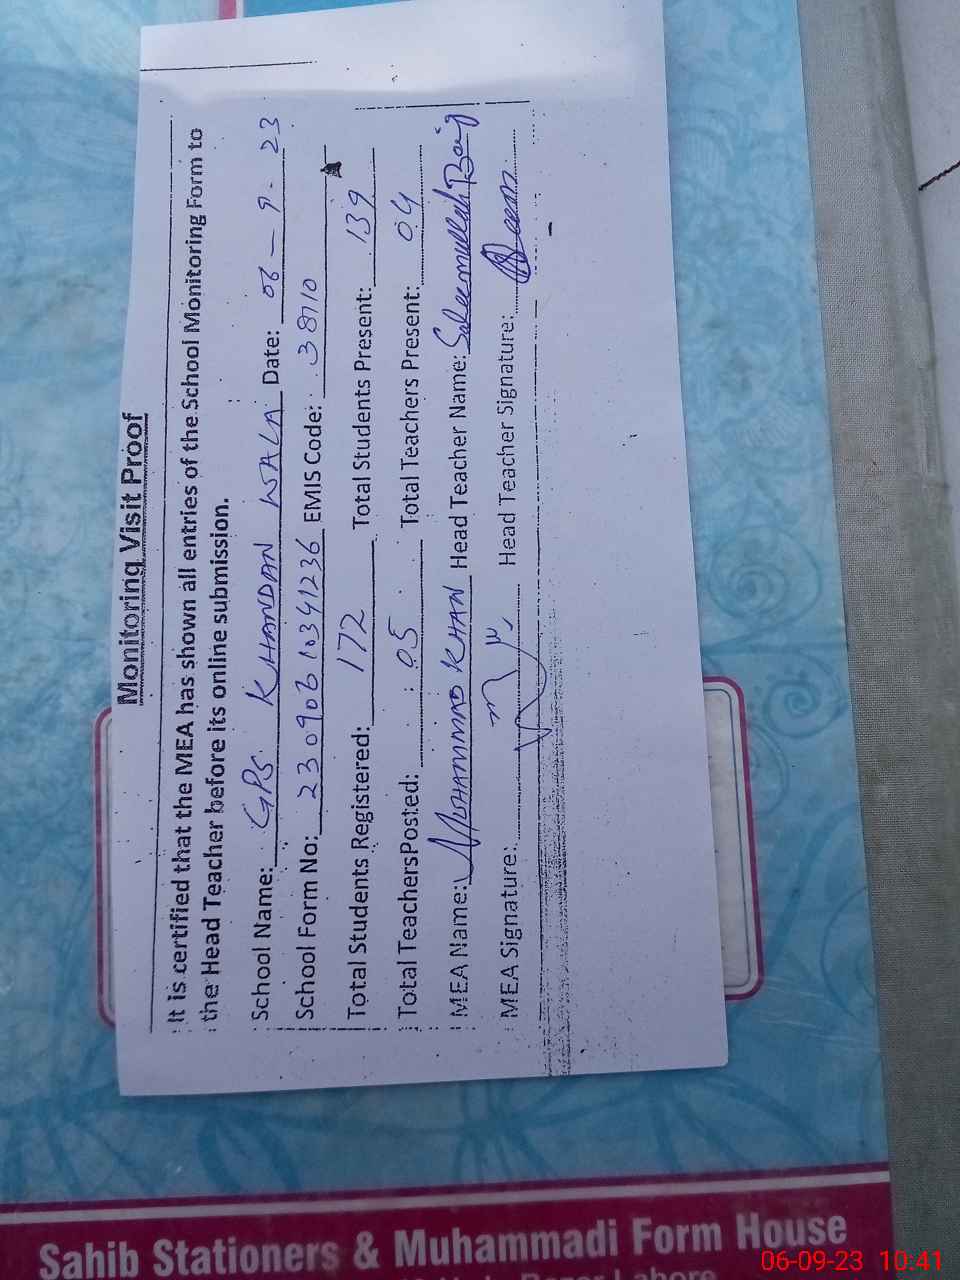 Monitoring Visit Proof
It is certified that the MEA has shown all entries of the School Monitoring Form to
the Head Teacher before its online submission.
School Name: GPS KHANDAN WALA Date: 06 - 9 - 23
School Form No: 230906 10341236 EMIS Code: 38110
Total Students Registered: 172 Total Students Present: 139
Total TeachersPosted: 05 Total Teachers Present: 04
MEA Name: MUHAMMAD KHAN Head Teacher Name: Saleemullah Baig
MEA Signature: Head Teacher Signature:
Sahib Stationers & Muhammadi Form House
Bazar Lahore
06-09-23 10:41